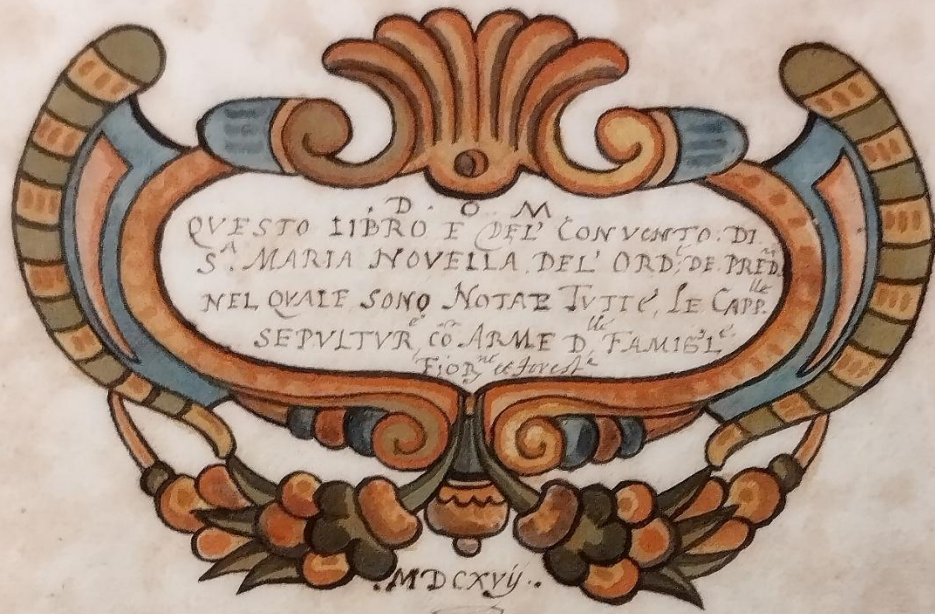 . D . O . M .
QVESTO LIBRO E DEL' CONVENTO . DI
S.ᴬ MARIA NOVELLA . DEL' ORD.ᵉ DE. PRED.ʳⁱ
NEL QVALE SONO NOTATE TVTTE, LE CAPP.ˡˡᵉ
SEPVLTVRᵉ, cõ ARME Dˡˡᵉ FAMIGLᵉ.
FIORⁿᵉ et forestᵉ
. MDCXVij .